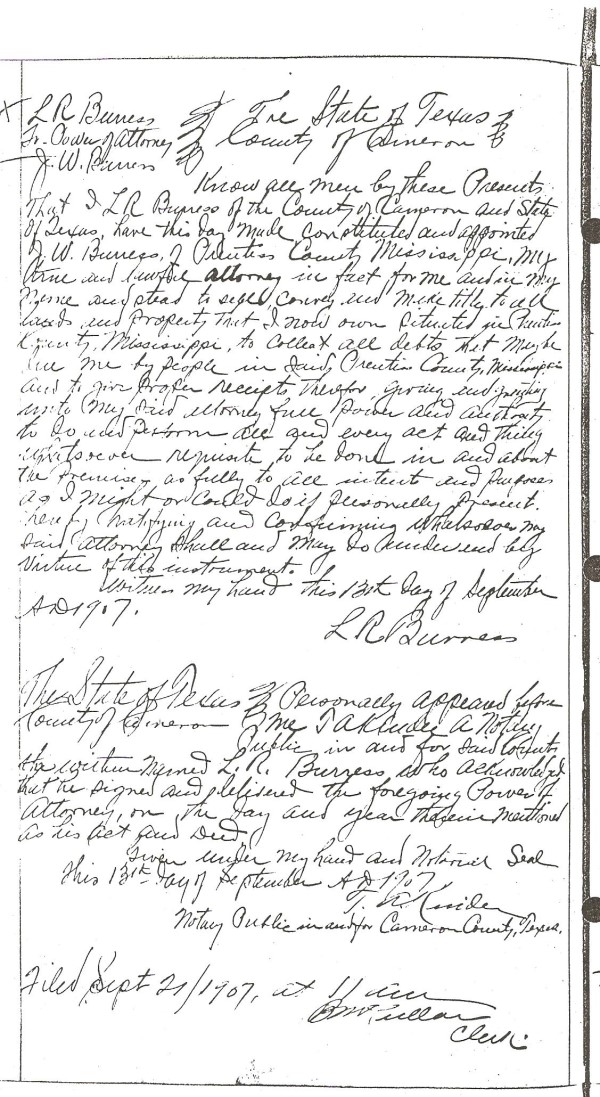 L R Burress
To. Power of Attorney
J. W. Burress
The State of Texas
County of Cameron
Know all men by these Presents
That I L R Burress of the County of Cameron and State
of Texas, have this day made, constituted and appointed
J. W. Burress, of Prentiss County Mississippi, my
true and lawful attorney in fact for me and in my
Name and stead to sell, convey and make title to all
lands and property that I now own situated in Prentiss
County, Mississippi, to collect all debts that may be
due me by people in said, Prentiss County, Mississippi
and to give proper receipts therefor, giving and granting
unto my said attorney full power and authority
to do and perform all and every act and thing
whatsoever requisite to be done in and about
the Premises, as fully to all intents and purposes
as I might or could do if personally present.
hereby ratifying and confirming whatsoever my
said attorney shall and may do under and by
virtue of this instrument.
Witness my hand this 13th day of September
AD 1907.
L R Burress
The State of Texas
County of Cameron
Personally appeared before
me T A Kinder A Notary
Public in and for said County
the within named L. R. Burress, who acknowledged
that he signed and delivered the foregoing Power of
Attorney, on the day and year therein mentioned
as his act and Deed
Given under my hand and Notarial Seal
this 13th day of September AD 1907
T. A Kinder
Notary Public in and for Cameron County, Texas.
Filed Sept 21/1907, at 11 am
Clerk.